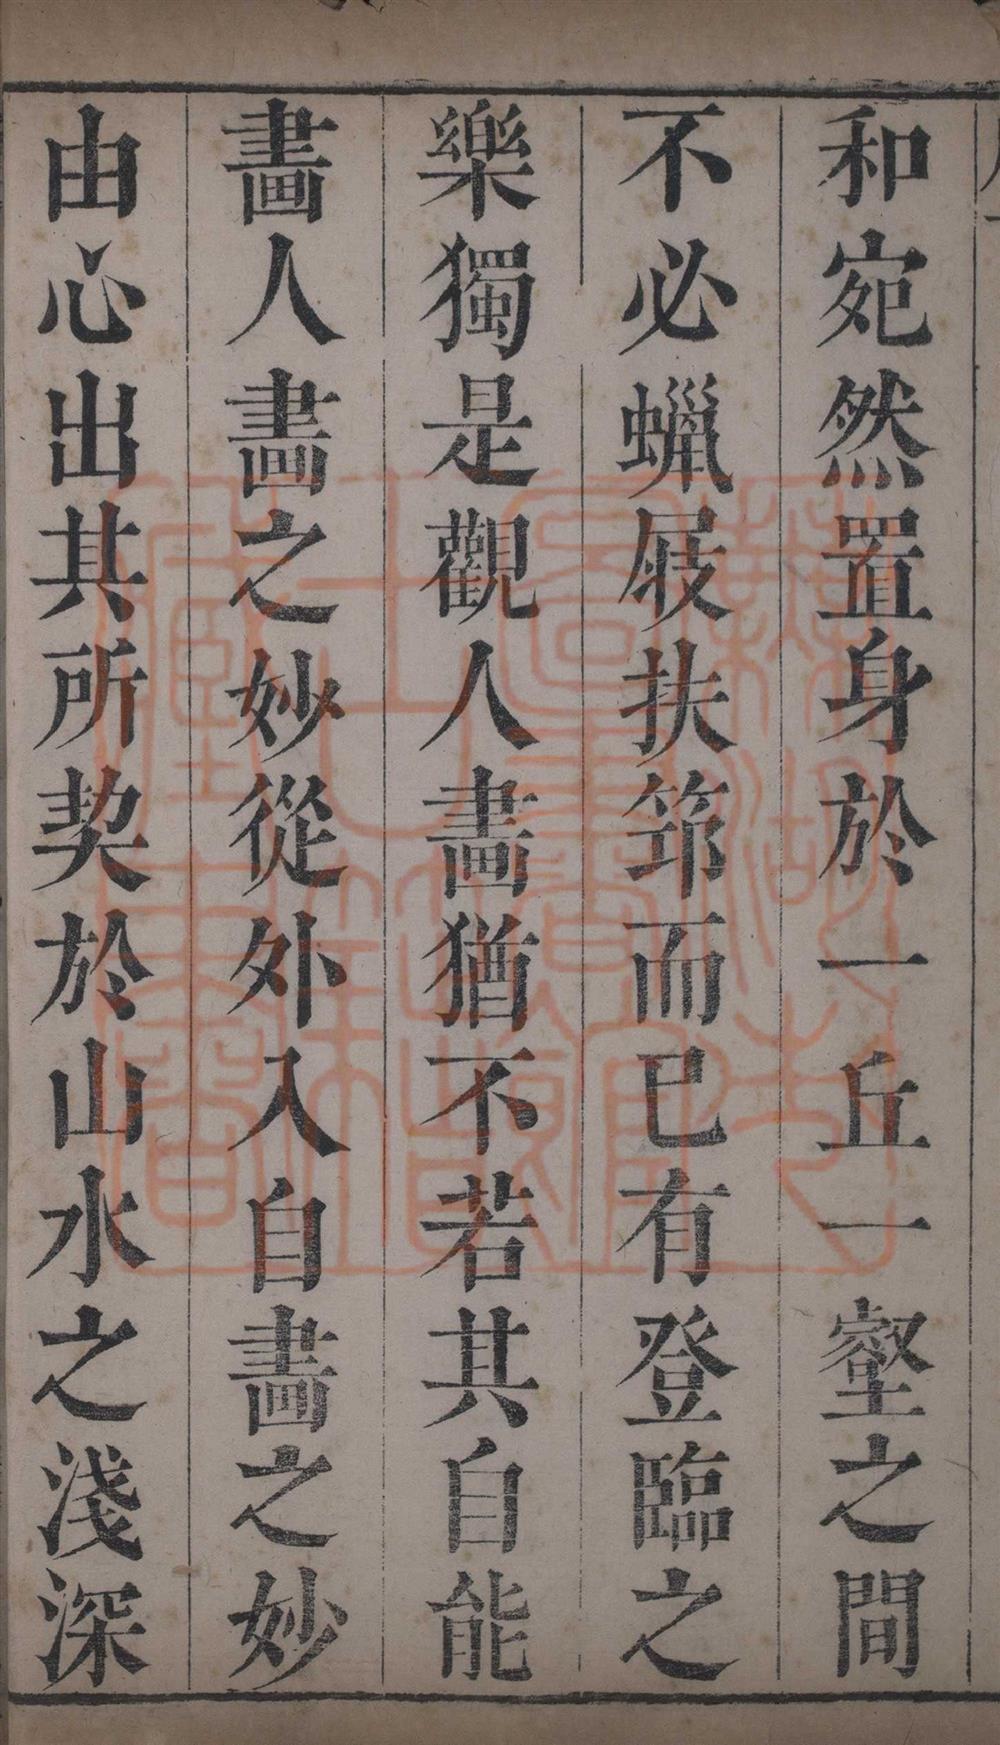 和宛然置身於一丘一壑之間
不必蠟屐扶筇而已有登臨之
樂獨是觀人畫猶不若其自能
畫人畫之妙從外入自畫之妙
由心出其所契於山水之淺深